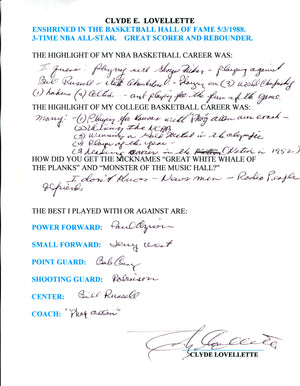 CLYDE E. LOVELLETTE
ENSHRINED IN THE BASKETBALL HALL OF FAME 5/3/1988.
3-TIME NBA ALL-STAR. GREAT SCORER AND REBOUNDER.
THE HIGHLIGHT OF MY NBA BASKETBALL CAREER WAS:
I guess playing with George Mikan - playing against
Bill Russell - Wilt Chamberlain - Playing on (3) World Championship
(1) Lakers (2) Celtics - and playing for the fun of the game
THE HIGHLIGHT OF MY COLLEGE BASKETBALL CAREER WAS:
Many - (1) Playing for Kansas with Phog Allen coach -
(2) Winning the NCAA
(3) Winning Gold Medal in the Olympic
(4) Player of the year -
(5) Leading in 1952)
HOW DID YOU GET THE NICKNAMES "GREAT WHITE WHALE OF
THE PLANKS" AND "MONSTER OF THE MUSIC HALL?"
I don't know - News men - Radio People
THE BEST I PLAYED WITH OR AGAINST ARE:
POWER FORWARD: Paul Arizin
SMALL FORWARD: Jerry West
POINT GUARD: Bob Cousy
SHOOTING GUARD: Robinson
CENTER: Bill Russell
COACH: "Phog Allen"
Clyde Lovellette
CLYDE LOVELLETTE